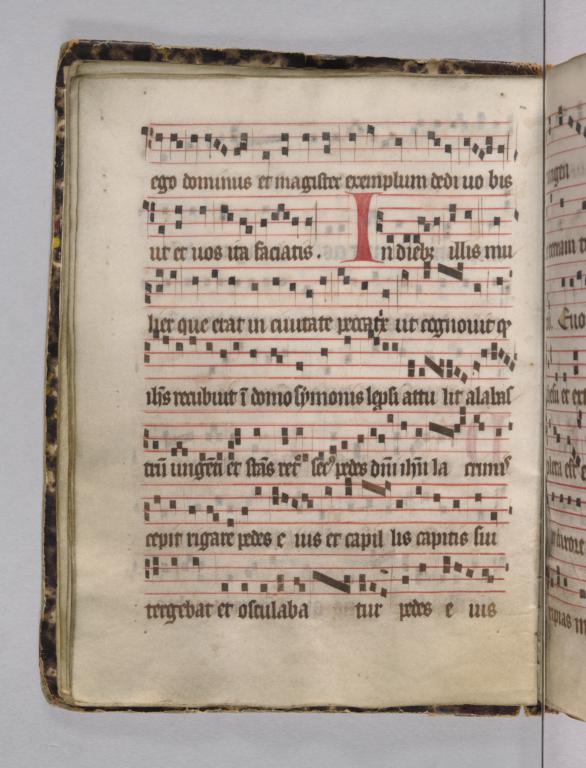 ego dominus et magister exemplum dedi uo bis
ut et uos ita faciatis. In dieb; illis mu
lier que erat in ciuitate peccatrix ut cognouit q
ihs recubuit ī domo symonis leprosi attu lit alabas
trū ungenti et stās retro pedes dnī ihū la crimis
cepit rigare pedes e ius et capil lis capitis sui
tergebat et osculaba tur pedes e ius
ungen
Euo